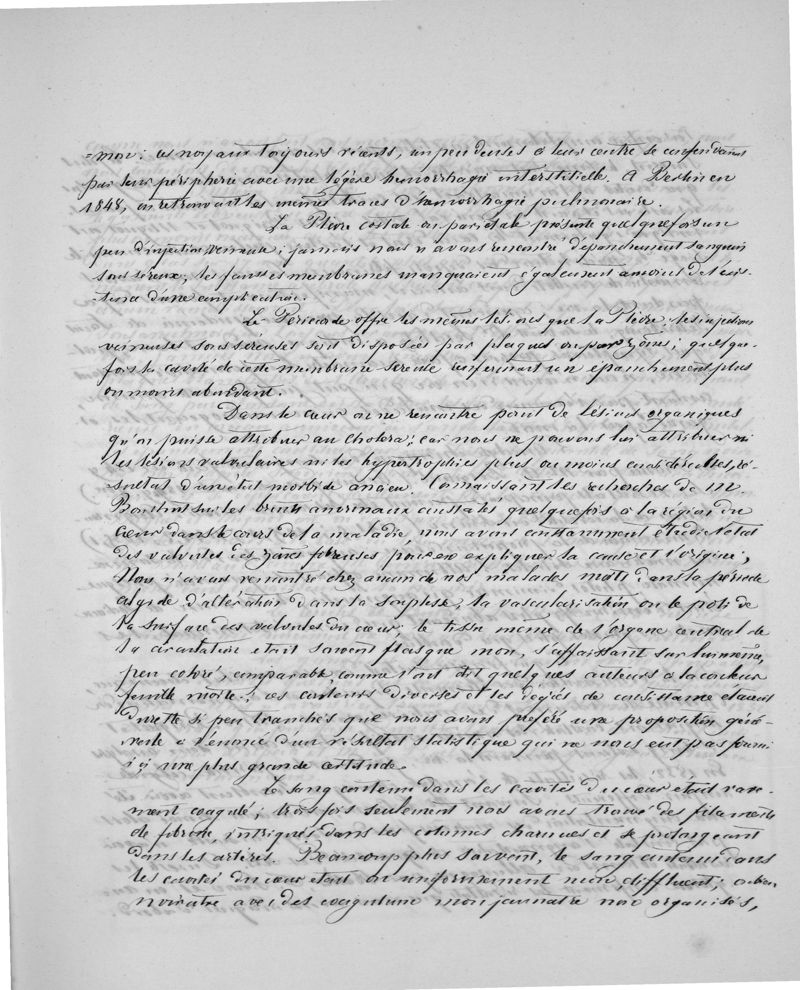 =mon: ces noyaux toujours récents, un peu denses à leur centre se confondaient
par leur périphérie avec une légère hemorrhagie interstitielle. A Berlin en
1848, on retrouvait les mêmes traces d'hemorrhagie pulmonaire.
La Plèvre costale ou pariétale présente quelquefois un
peu d'injection veineuse; jamais nous n'avons rencontré d'épanchement sanguin
sous séreux, les fausses membranes manquaient également à moins de l'exis-
tence d'une complication.
Le Péricarde offre les mêmes lésions que la Plèvre; les injections
veineuses sous sereuses sont disposées par plaques ou par zônes; quelque-
fois la cavité de cette membrane sereuse renfermait un épanchement plus
ou moins abondant.
Dans le cœur on ne rencontre point de lésions organiques
qu'on puisse attribuer au choléra; car nous ne pouvons lui attribuer ni
les lésions valvulaires ni les hypertrophies plus ou moins considérables, ré-
sultat d'un état morbide ancien. Connaissant les recherches de M.
sur les bruits anormaux constatés quelquefois à la région du
cœur dans le cours de la maladie, nous avons constamment étudié l'état
des valvules des zônes fibreuses pour en expliquer la cause et l'origine;
Nous n'avons rencontré chez aucun de nos malades morts dans la période
algide d'altération dans la souplesse, la vascularisation ou le poli de
la surface des valvules du cœur; le tissu même de l'organe central de
la circulation etait souvent flasque mou, s'affaissant sur lui même,
peu coloré, comparable, comme l'ont dit quelques auteurs à la couleur
feuille morte; ces couleurs diverses et les degrés de consistance étaient
du reste si peu tranchés que nous avons préféré une proposition géné-
rale à l'énoncé d'un résultat statistique qui ne nous eut pas fourni
ici une plus grande certitude.
Le sang contenu dans les cavités du cœur était rare-
ment coagulé; trois fois seulement nous avons trouvé des filaments
de fibrine, intriqués dans les colonnes charnues et se prolongeant
dans les artères. Beaucoup plus souvent, le sang contenu dans
les cavités du cœur était ou uniformément noir, diffluent; ou bien
noirâtre avec des coagulums mou jaunatre non organisés,